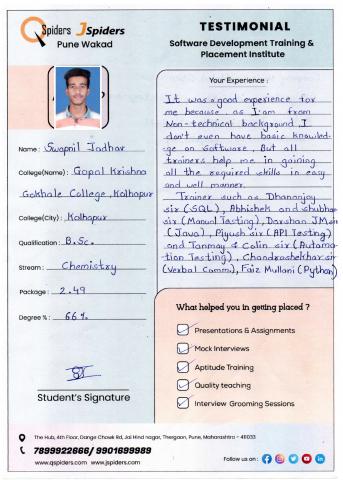 QSpiders JSpiders
Pune Wakad
TESTIMONIAL
Software Development Training &
Placement Institute
Name : Swapnil Jadhav
College(Name) : Gopal Krishna
Gokhale College, Kolhapur
College(City) : Kolhapur
Qualification : B.Sc.
Stream : Chemistry
Package : 2.49
Degree % : 66%
Student's Signature
Your Experience :
It was a good experience for
me because, as I'am from
Non-technical background I
don't even have basic knowled-
ge on Software, But all
trainers help me in gaining
all the required skills in easy
and well manner.
Trainer such as Dhananjay
sir (SQL), Abhishek and shubham
sir (Manual Testing), Darshan JMan
(Java), Piyush sir (API Testing)
and Tanmay & Colin sir (Automa-
tion Testing), Chandrashekhar sir
(Verbal Comm), Faiz Mullani (Python)
What helped you in getting placed ?
Presentations & Assignments
Mock Interviews
Aptitude Training
Quality teaching
Interview Grooming Sessions
The Hub, 4th Floor, Dange Chowk Rd, Jai Hind nagar, Thergaon, Pune, Maharashtra - 411033
7899922666/ 9901699989
www.qspiders.com www.jspiders.com
Follow us on :